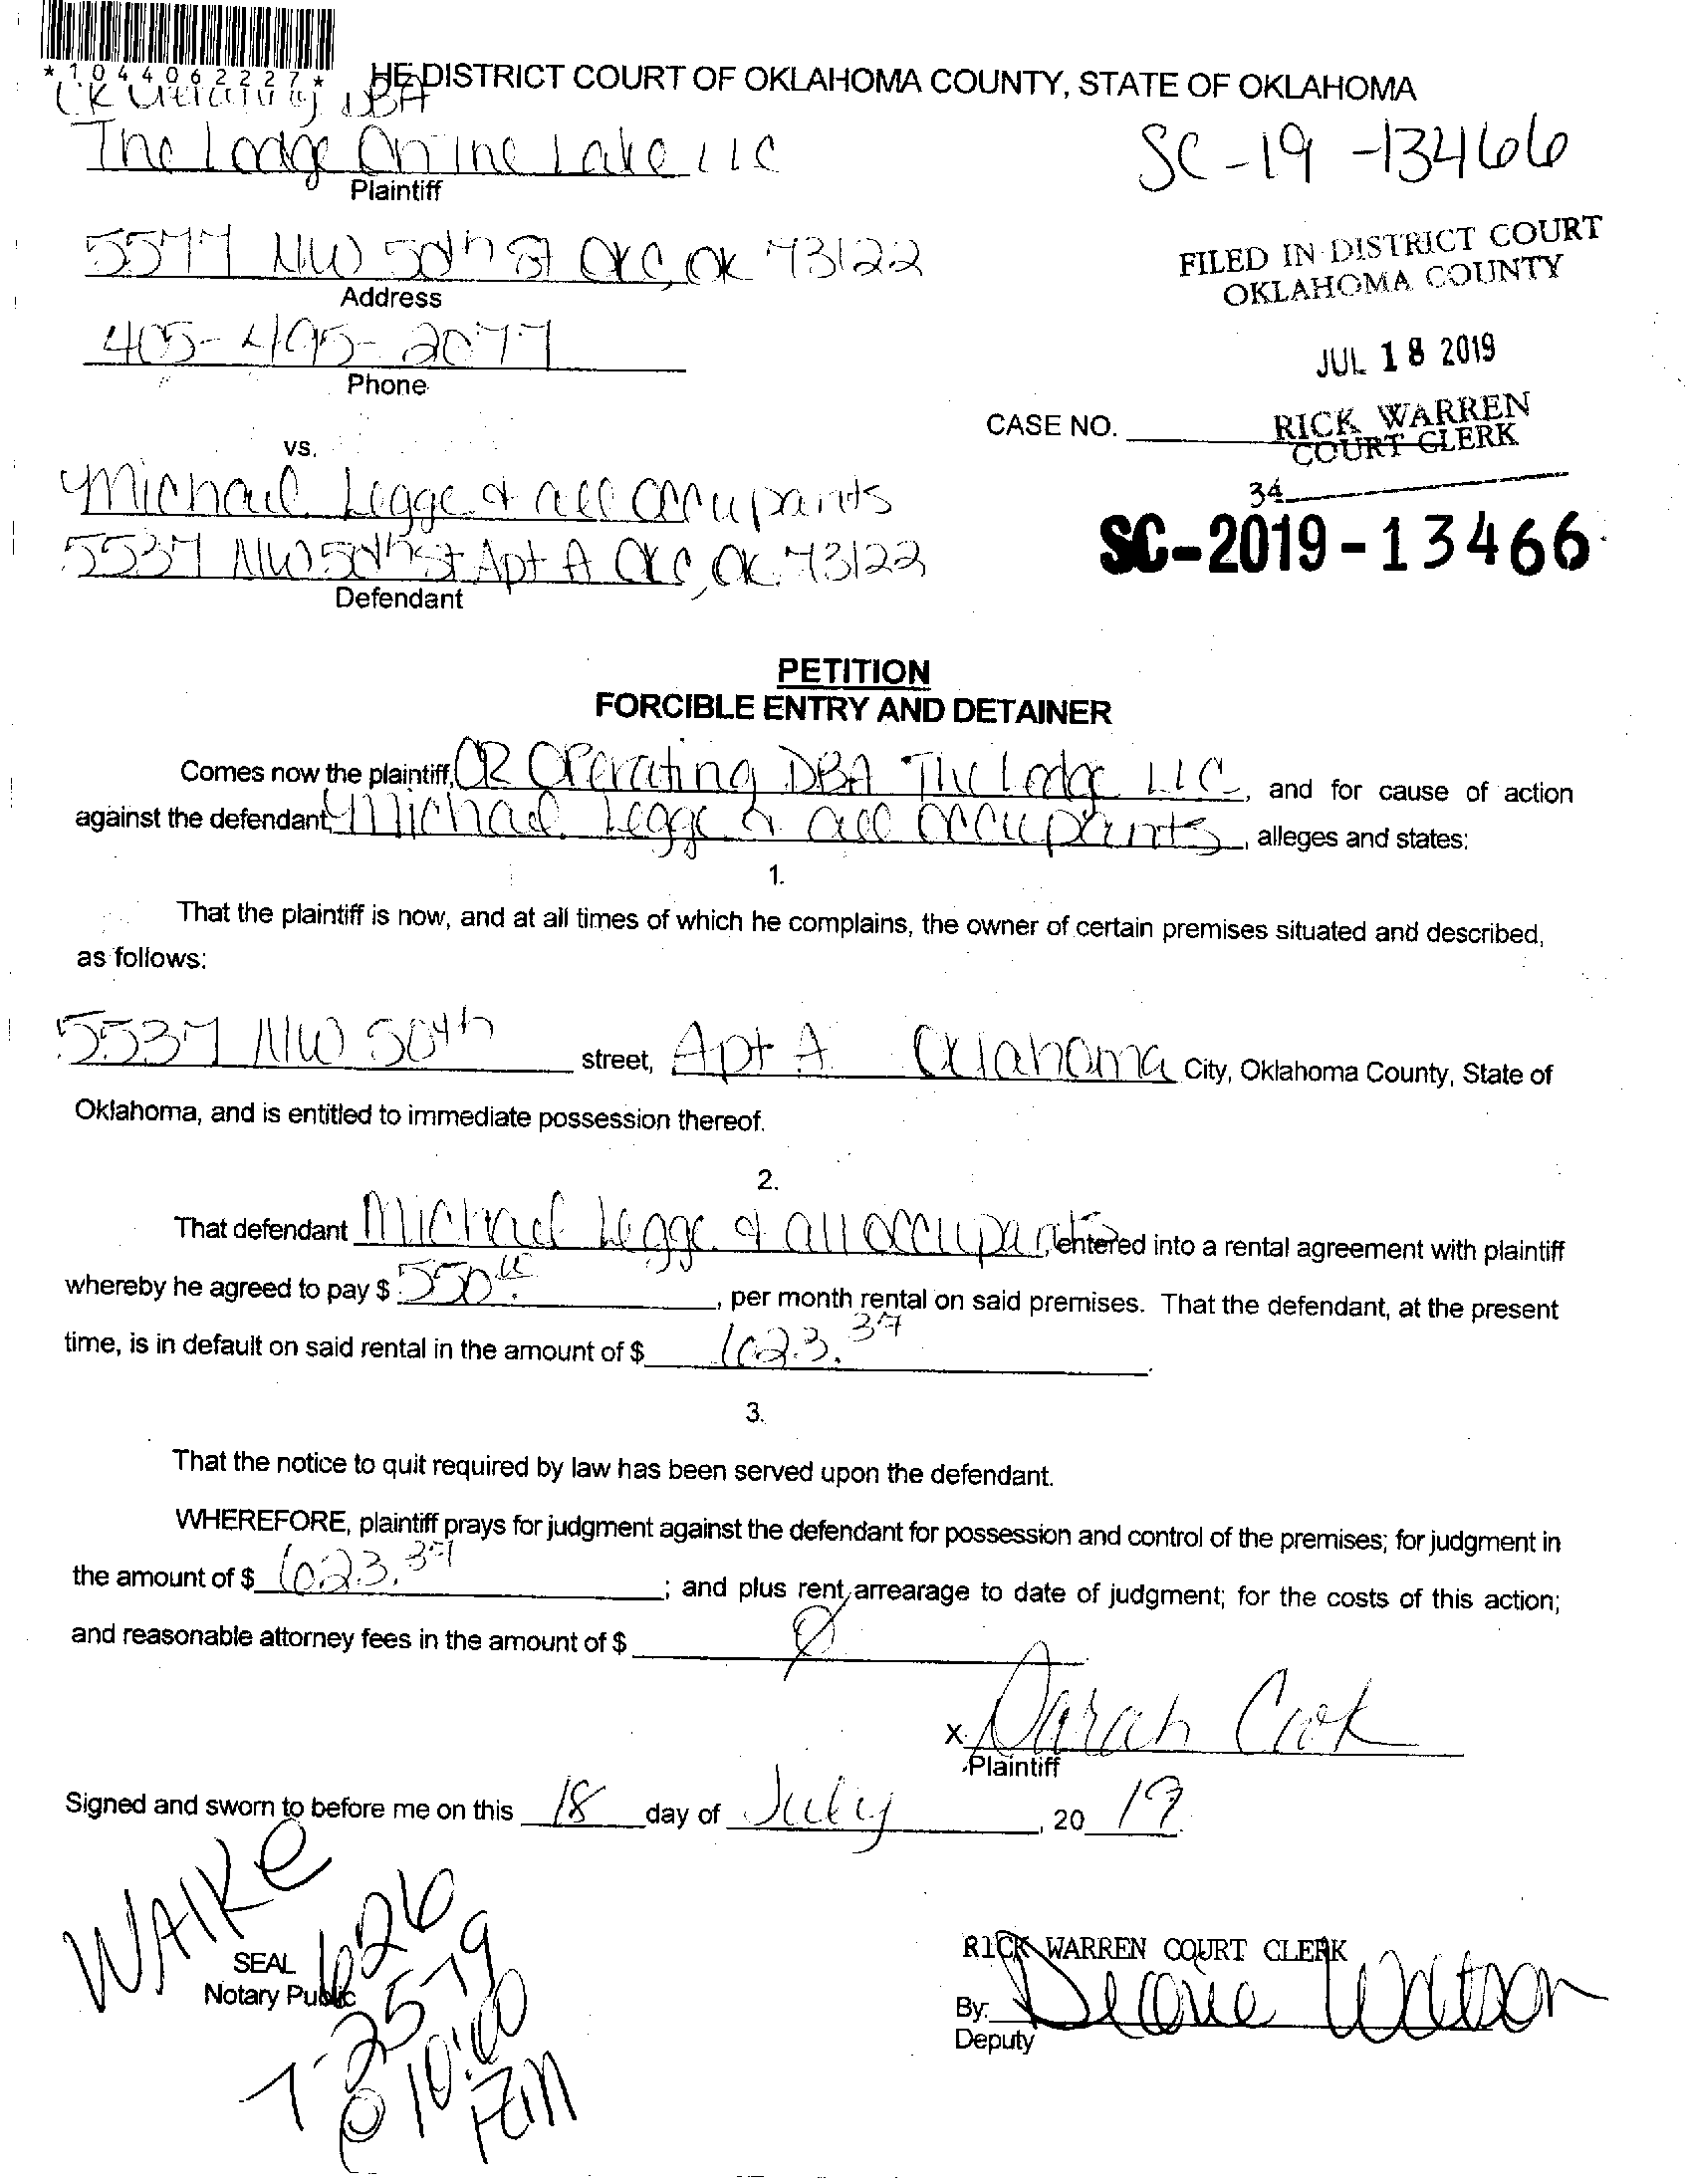 *1044062227*
HE DISTRICT COURT OF OKLAHOMA COUNTY, STATE OF OKLAHOMA
DBA
The Lodge On The Lake LLC
Plaintiff
SC-19-13466
5577 NW 50th St OKC, OK 73122
Address
FILED IN DISTRICT COURT
OKLAHOMA COUNTY
405-495-2077
Phone
JUL 18 2019
CASE NO.
RICK WARREN
COURT CLERK
vs.
34
Michael Legge & all occupants
5537 NW 50th St Apt A OKC, OK 73122
Defendant
SC-2019-13466
PETITION
FORCIBLE ENTRY AND DETAINER
Comes now the plaintiff, CR Operating DBA The Lodge LLC, and for cause of action
against the defendant, Michael Legge & all occupants, alleges and states:
1.
That the plaintiff is now, and at all times of which he complains, the owner of certain premises situated and described,
as follows:
5537 NW 50th street, Apt A Oklahoma City, Oklahoma County, State of
Oklahoma, and is entitled to immediate possession thereof.
2.
That defendant Michael Legge & all occupants entered into a rental agreement with plaintiff
whereby he agreed to pay $ 550. , per month rental on said premises. That the defendant, at the present
time, is in default on said rental in the amount of $ 1023.37.
3.
That the notice to quit required by law has been served upon the defendant.
WHEREFORE, plaintiff prays for judgment against the defendant for possession and control of the premises; for judgment in
the amount of $ 1023.37; and plus rent arrearage to date of judgment; for the costs of this action;
and reasonable attorney fees in the amount of $ Ø
X Darah Cook
Plaintiff
Signed and sworn to before me on this 18 day of July, 20 19
WAIKE
SEAL
Notary Public
626
7-25-19
@ 10:00
AM
RICK WARREN COURT CLERK
By:
Watson
Deputy